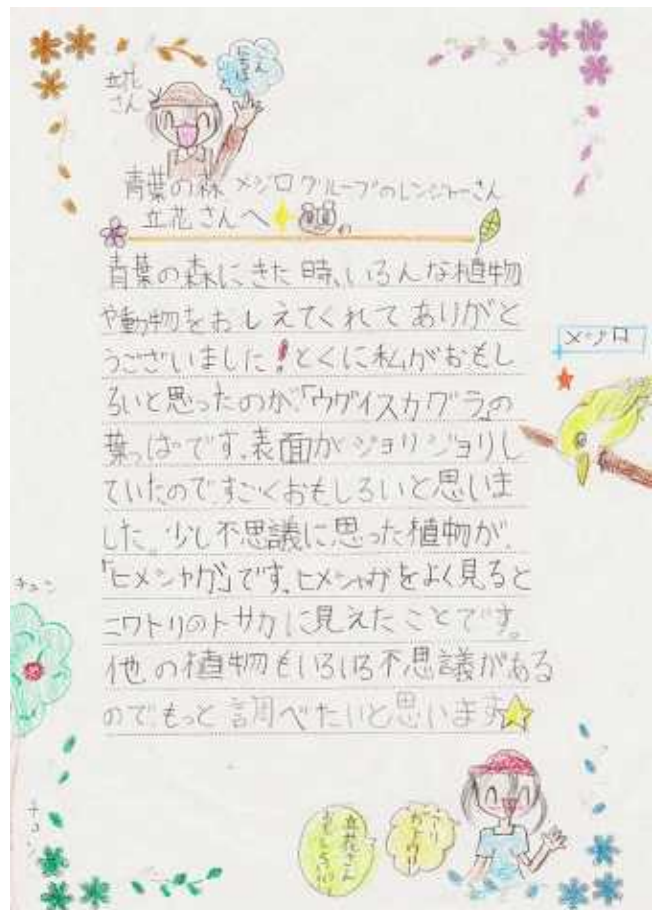 立花
さん
青葉の森 メジログループのレンジャーさん
立花さんへ
青葉の森にきた時、いろんな植物
や動物をおしえてくれてありがと
うございました!とくに私がおもし
ろいと思ったのが、「ウグイスカグラ」の
葉っぱです。表面がジョリジョリし
ていたので、すごくおもしろいと思いま
した。少し不思議に思った植物が、
「ヒメシャガ」です。ヒメシャガをよく見ると
ニワトリのトサカに見えたことです。
他の植物もいろいろ不思議がある
のでもっと調べたいと思います
メジロ
チュン
チュン
立花さん
おもしろい